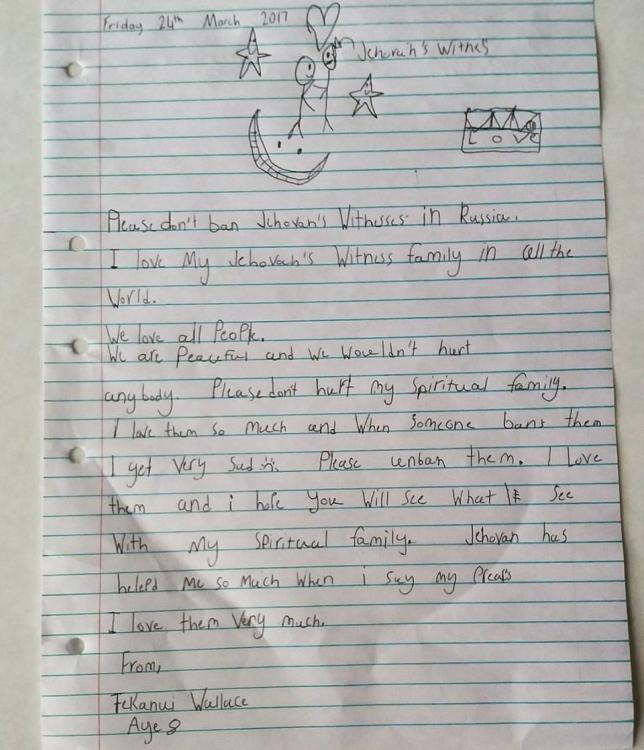 Friday 24th March 2017
Jehovah's Witnes
LOVE
Please don't ban Jehovah's Witnesses in Russia.
I love My Jehovah's Witness family in all the
World.
We love all People.
We are Peaceful and We Wouldn't hurt
anybody. Please don't hurt my Spiritual family.
I love them so much and When Someone bans them
I get Very Sad :(. Please unban them. I Love
them and i hope You Will See What I See
With My Spiritual family. Jehovah has
helepd Me so Much When i say my
I love them Very much.
From,
Wallace
Age 8